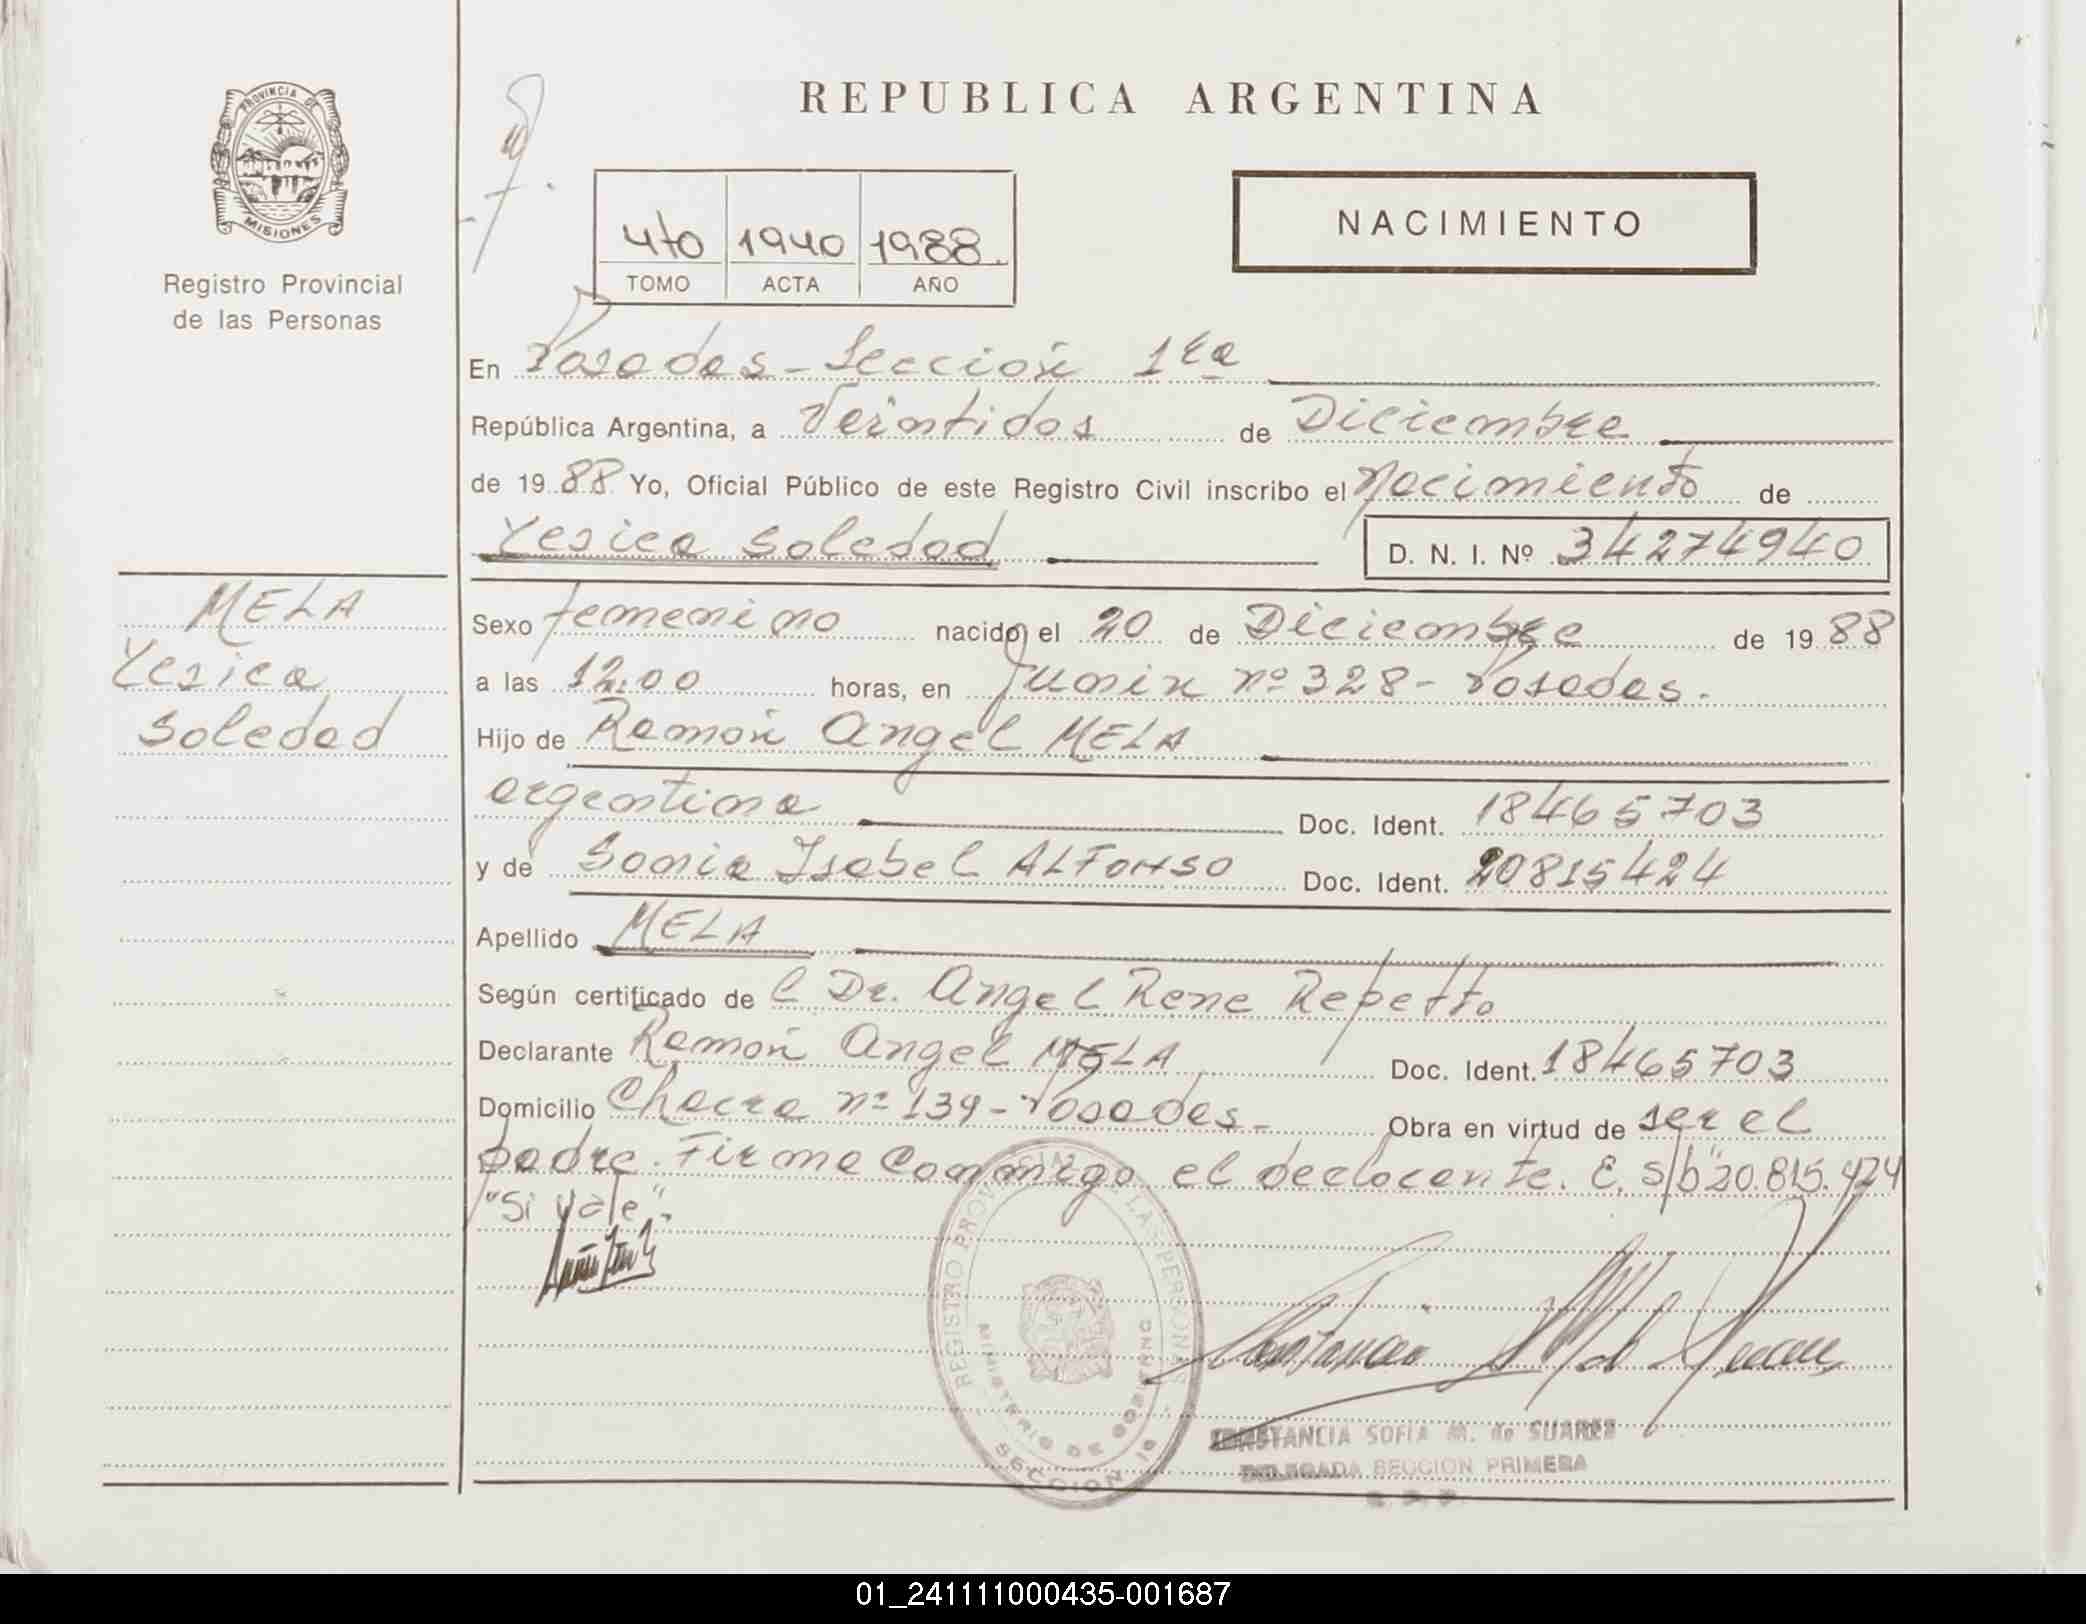 PROVINCIA DE
MISIONES
Registro Provincial
de las Personas
REPUBLICA ARGENTINA
4to 1940 1988.
TOMO ACTA AÑO
NACIMIENTO
En Posadas - Sección 1ra
República Argentina, a Veintidos de Diciembre
de 1988 Yo, Oficial Público de este Registro Civil inscribo el Nacimiento de
Yesica Soledad D. N. I. Nº 34274940
MELA
Yesica
Soledad
Sexo femenino nacido el 20 de Diciembre de 1988
a las 12:00 horas, en Junin nº 328 - Posadas.
Hijo de Ramón Angel MELA
argentina Doc. Ident. 18465703
y de Sonia Isabel ALFONSO Doc. Ident. 20815424
Apellido MELA
Según certificado del Dr. Angel Rene Repetto
Declarante Ramón Angel MELA Doc. Ident. 18465703
Domicilio Chacra nº 139 - Posadas - Obra en virtud de ser el
padre. Firma conmigo el declarante. E. s/b "20.815.424
"Si vale".
REGISTRO PROVINCIAL DE LAS PERSONAS
MINISTERIO DE GOBIERNO
SECCION 1a
CONSTANCIA SOFIA M. de SUAREZ
DELEGADA SECCION PRIMERA
R. P. P.
01_241111000435-001687